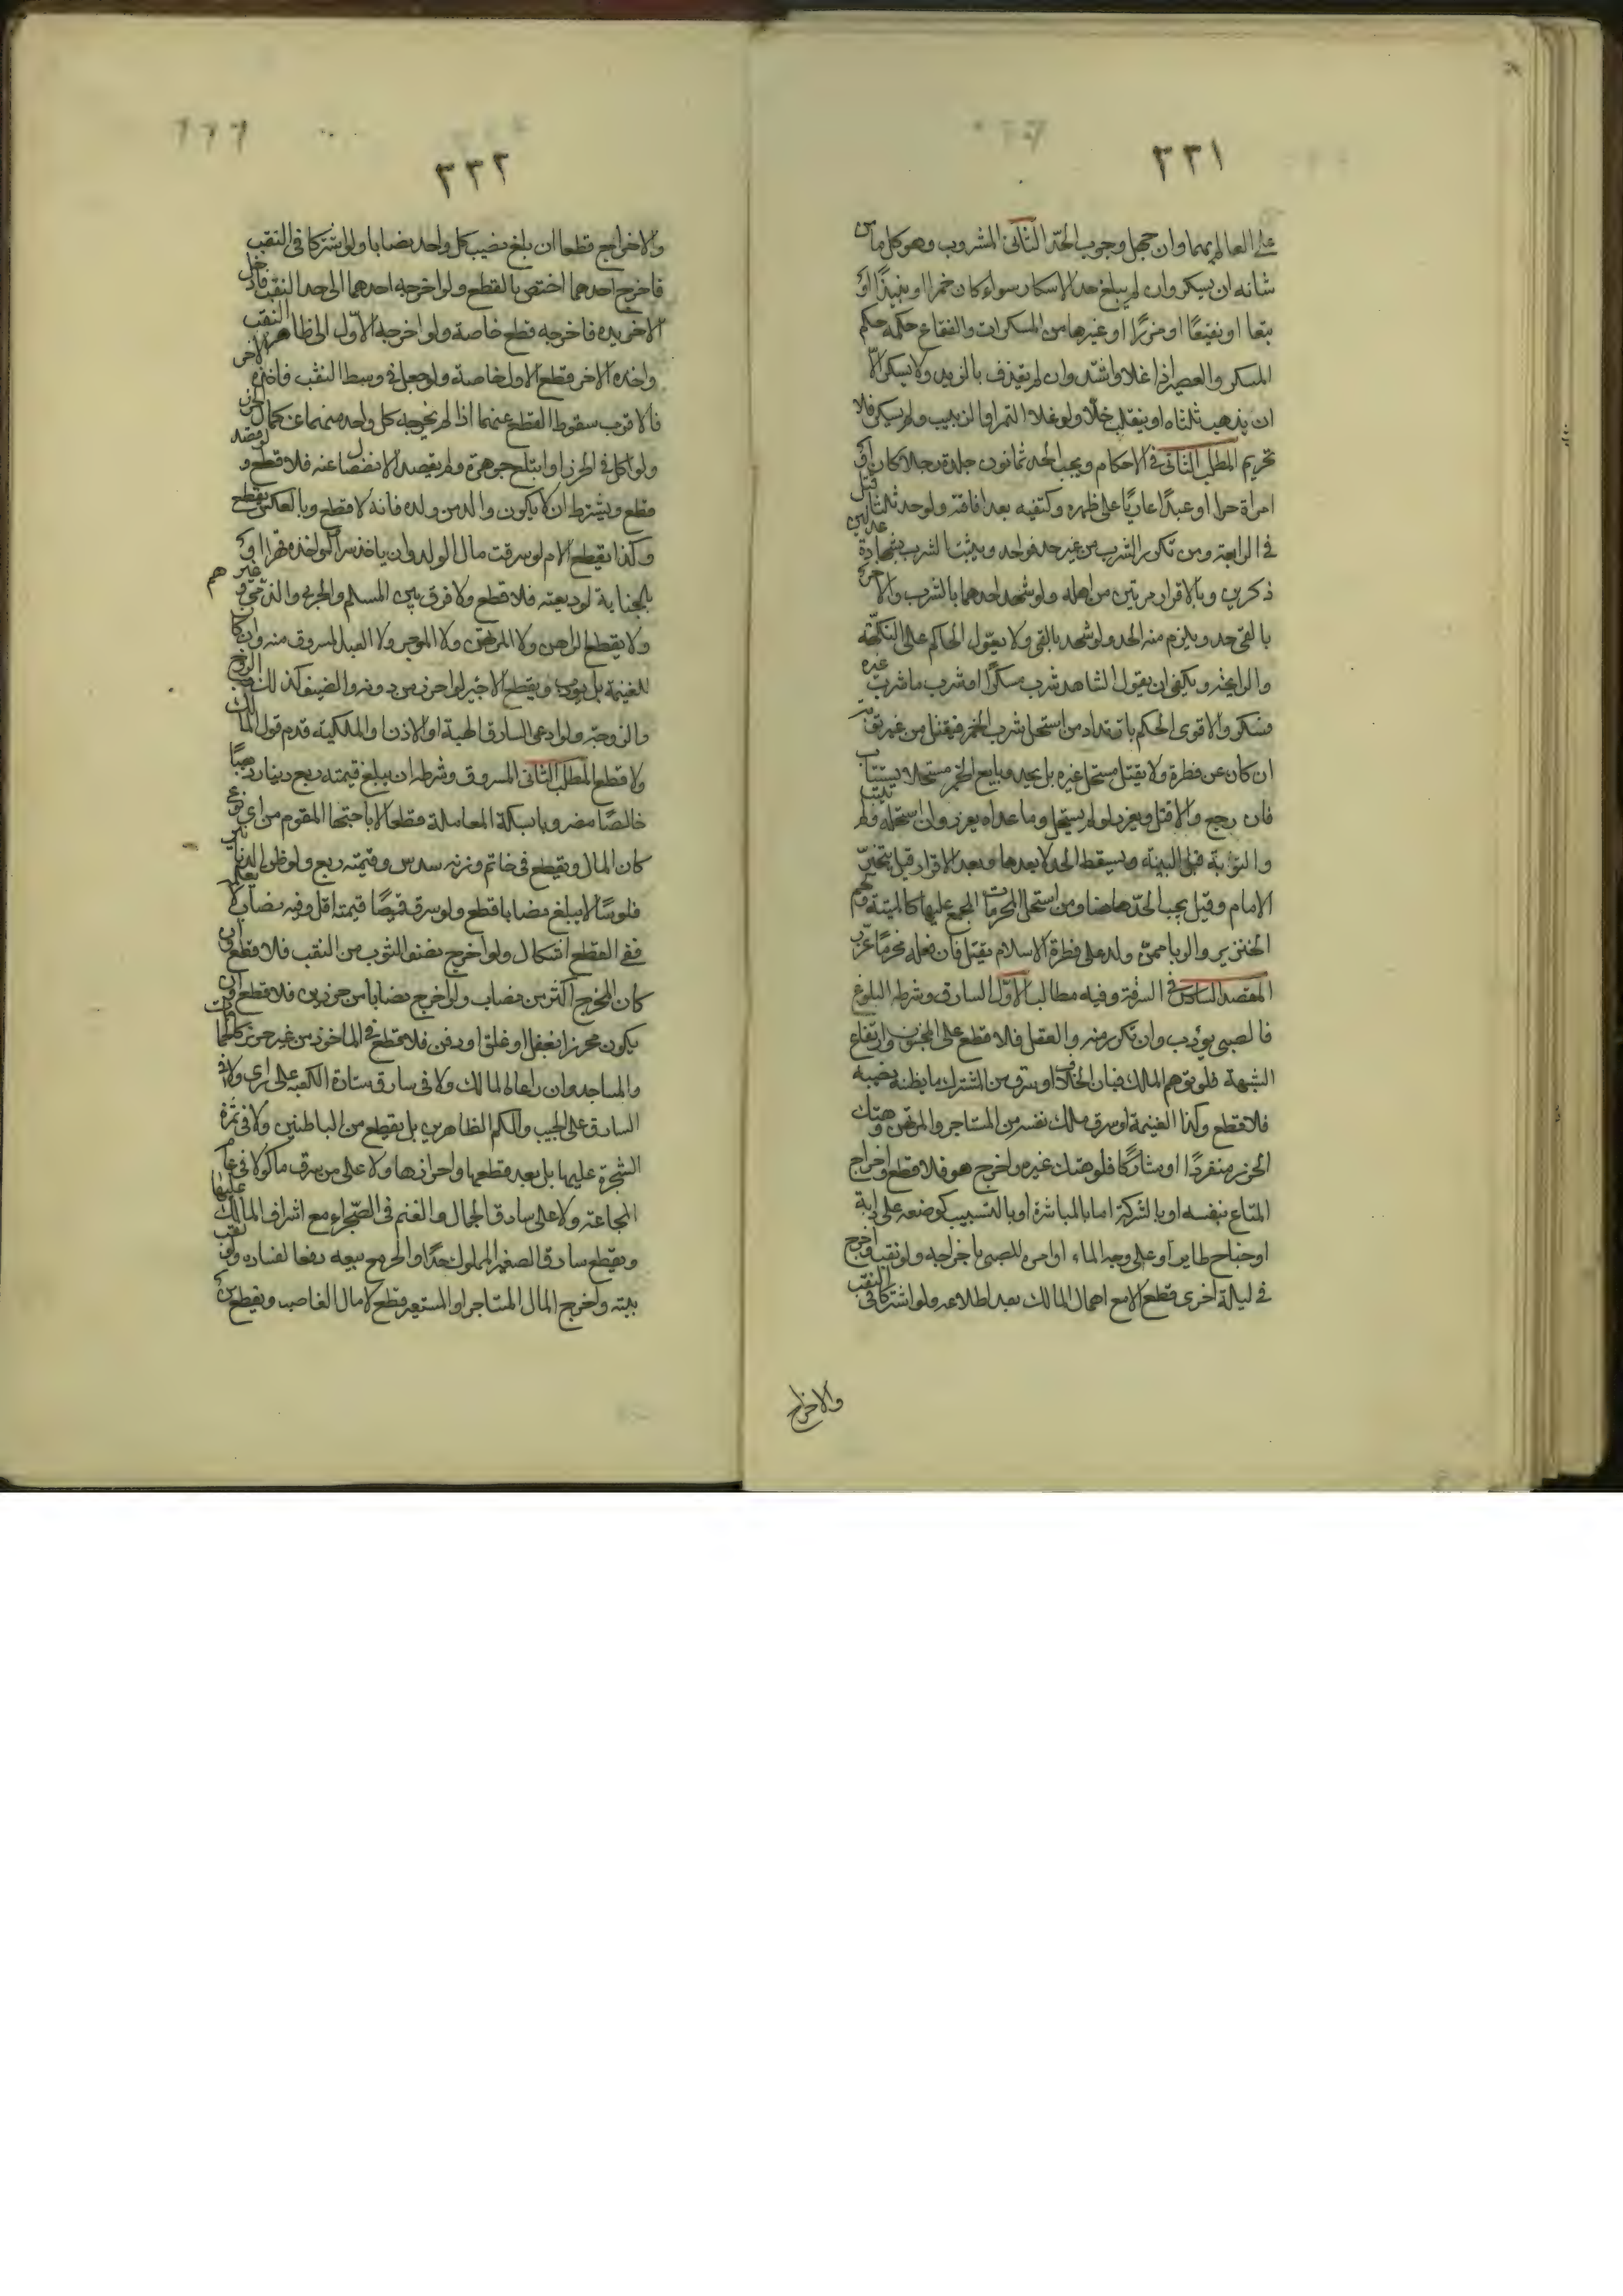 ٣٣١
على العالم بهما وان جهل وجوب الحدّ الثانى المشروب وهو كل ما من
شانه ان يسكر وان لم يبلغ حد الاسكار سواء كان خمرا او نبيذًا او
بتعا او نقيعًا او مزرًا او غيرها من المسكرات والفقاع حكمه حكم
المسكر والعصير اذا غلا واشتد وان لم يقذف بالزبد ولا يسكر الّا
ان يذهب ثلثاه او ينقلب خلّا ولو غلا التمر او الزبيب ولم يسكر فلا
تحريم المطلب الثانى فى الاحكام ويجب الحد ثمانون جلدة رجلا كان او
امراة حرا او عبدًا عاريًا على ظهره وكتفيه بعد افاقته ولو حد ثلثا قتل
فى الرابعة ومن تكرر الشرب من غير حد فواحد ويثبت الشرب بشهادة عدلين
ذكرين وبالاقرار مرتين من اهله ولو شهد احدهما بالشرب والاخر
بالقى حد ويلزم منه الحد لو شهدا بالقى ولا يعوّل الحاكم على النكهة
والرايحة ويكفى ان يقول الشاهد شرب مسكرًا او شرب ما شرب غيره
فسكر والاقوى الحكم بارتداد من استحل شرب الخمر فيقتل من غير توبة
ان كان عن فطرة ولا يقتل مستحل غيره بل يحد وبايع الخمر مستحلا يستتاب
فان رجع والا قتل ويعزر لو لم يستحل وما عداه يعزر وان استحله ولم يتب
والتوبة قبل البينة ويسقط الحد لا بعدها وبعد الاقرار قيل يتخيّر
الامام وقيل يجب الحدّ هاهنا ومن استحل المحرمات المجمع عليها كالميتة ولحم
الخنزير والربا ممن ولد على فطرة الاسلام يقتل فان فعله محرمًا عزّر
المقصد السادس فى السرقة وفيه مطالب الاوّل السارق وشرطه البلوغ
فالصبى يؤدب وان تكرر منه والعقل فلا قطع على المجنون وارتفاع
الشبهة فلو توهم الملك فبان الخلاف او سرق من المشترك ما يظنه نصيبه
فلا قطع وكذا الغنيمة لو سرق ملك نفسه من المستاجر والمرتهن وهتك
الحرز منفردًا او مشاركًا فلو هتك غيره واخرج هو فلا قطع واخراج
المتاع بنفسه او بالشركة اما بالمباشرة او بالتسبيب كوضعه على دابة
او جناح طاير او على وجه الماء او امره للصبى باخراجه ولو نقب واخرج
فى ليلة اخرى قطع الا مع اهمال المالك بعد اطلاعه ولو اشتركا فى النقب
والاخراج
٣٣٢
والاخراج قطعا ان بلغ نصيب كل واحد نصابا ولو اشتركا فى النقب
فاخرج احدهما اختص بالقطع ولو اخرجه احدهما الى حد النقب فادخل
الاخر يده فاخرجه قطع خاصة ولو اخرجه الاوّل الى ظاهر النقب
واخذه الاخر قطع الاول خاصة ولو جعل فى وسط النقب فاخذه الاخر
فالاقرب سقوط القطع عنهما اذا لم يخرجه كل واحد منهما عن كمال الحرز
ولو اكل فى الحرز او ابتلع جوهرة ولم يقصد الانفصال عنه فلا قطع ولو قصد
قطع ويشترط ان لا يكون والد من ولده فانه لا قطع وبالعكس يقطع
وكذا يقطع الام لو سرقت مال الولد وان ياخذ سرا لو اخذه قهرا او
بالجناية لوديعته فلا قطع ولا فرق بين المسلم والحربى والذمّى وغيرهم
ولا يقطع الراهن ولا المرتهن ولا الموجر ولا العبد المسروق منه وان كا
للغنيمة بل يؤدب ويقطع الاجير لو احرز من دونه والضيف كذلك الزوج
والزوجة ولو ادعى السارق الهبة او الاذن او الملكية قدم قول المالك
ولا قطع المطلب الثانى المسروق وشرطه ان يبلغ قيمته ربع دينار ذهبًا
خالصًا مضروبا بسكة المعاملة مقطعا لاباحتها المقوم من اى نوع
كان المال ويقطع فى خاتم وزنه سدس وقيمته ربع ولو ظن الدنانير
فلوسًا لا يبلغ نصابا قطع ولو سرق قميصًا قيمته اقل وفيه نصاب لا يعلمه
ففى القطع اشكال ولو اخرج نصف الثوب من النقب فلا قطع وان
كان المخرج اكثر من نصاب ولو اخرج نصابا من حرزين فلا قطع وان
يكون محرزا بقفل او غلق او دفن فلا قطع فى الماخوذ من غير حرز كالحمامات
والمساجد وان راعاه المالك ولا فى سارق ستارة الكعبة على راى ولا فى
السارق على الجيب والكم الظاهرين بل يقطع من الباطنين ولا فى ثمرة
الشجرة عليها بل بعد قطعها واحرازها ولا على من سرق ماكولا فى عام
المجاعة ولا على سارق الجمال والغنم فى الصحراء مع اشراف المالك عليها
ويقطع سارق الصغير المملوك حدًا والحر مع بيعه دفعا لفساده ولو نقب
بيته واخرج المال المستاجر او المستعير قطع لا مال الغاصب ويقطع من